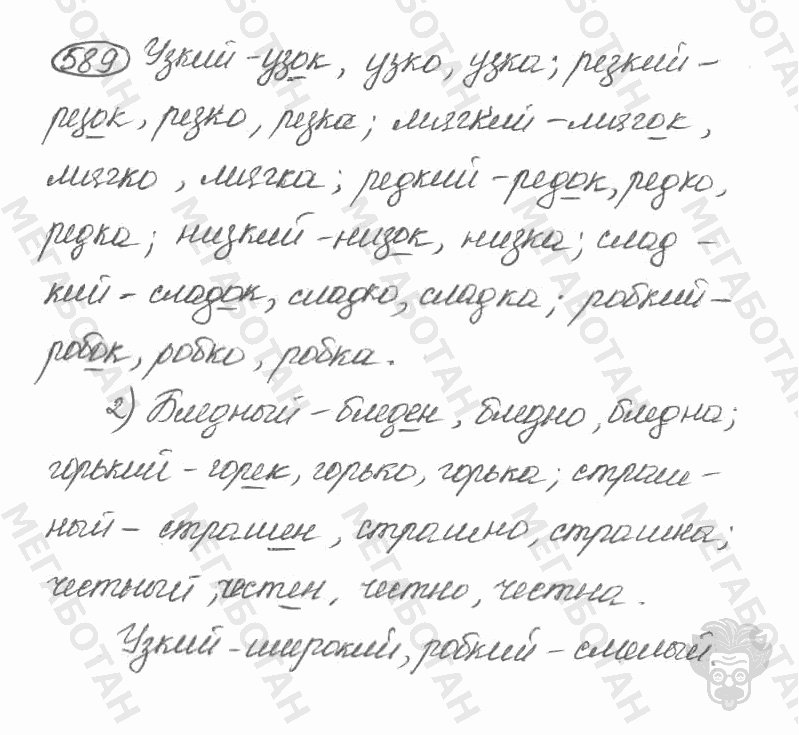 589 Узкий - узок, узко, узка; резкий -
резок, резко, резка; мягкий - мягок,
мягко, мягка; редкий - редок, редко,
редка; низкий - низок, низка; слад -
кий - сладок, сладко, сладка; робкий -
робок, робко, робка.
2) Бледный - бледен, бледно, бледна;
горький - горек, горько, горька; страш -
ный - страшен, страшно, страшна;
честный, честен, честно, честна.
Узкий - широкий, робкий - смелый.
МЕГАБОТАН